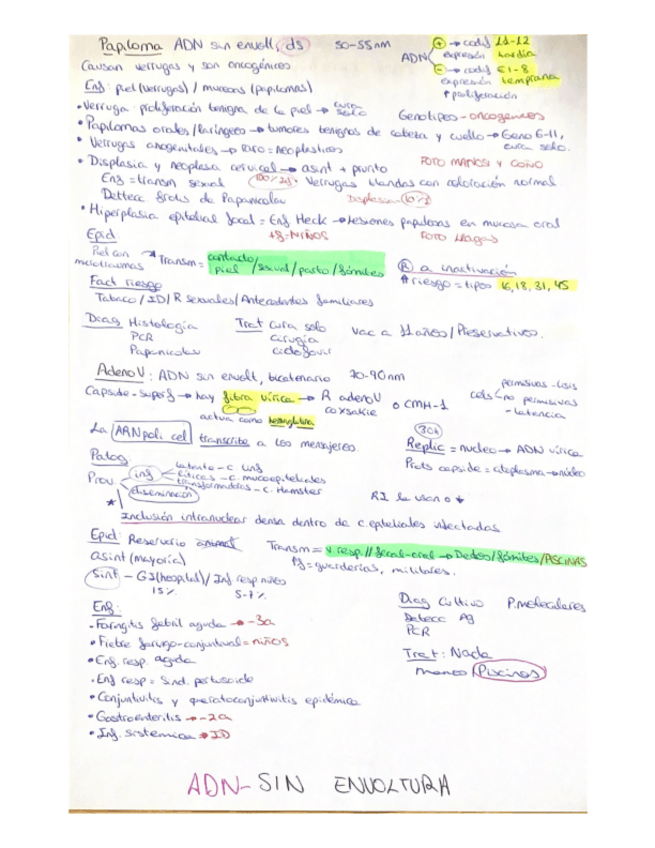 Papiloma ADN sin envolt, ds 50-55nm
ADN
+ → codif L1-L2
expresión tardía
- → codif E1-8
expresión temprana
↑ proliferación
Causan verrugas y son oncogénicos
Enf: piel (verrugas) / mucosas (papilomas)
• Verruga: proliferación benigna de la piel → cura solo
Genotipos - oncogenes
• Papilomas orales/laríngeos → tumores benignos de cabeza y cuello → Geno 6-11, cura solo.
• Verrugas anogenitales → raro = neoplásticos
• Displasia y neoplasia cervical → asint + prurito
FOTO MANOS Y COÑO
Enf = transm sexual
Verrugas blandas con coloración normal.
Detecc. frotis de Papanicolau
Displasia
• Hiperplasia epitelial focal = Enf Heck → lesiones papulosas en mucosa oral
+f = NIÑOS
FOTO Llagas
Epid.
Piel con
Transm = contacto/piel/sexual/parto/fómites
R a inactivación
↑ riesgo = tipos 16, 18, 31, 45
Fact riesgo
Tabaco / ID / R sexuales / Antecedentes familiares
Diag Histología
PCR
Papanicolau
Trat cura solo
cirugía
cidofovir
Vac a 11 años / Preservativos.
AdenoV: ADN sin envolt, bicatenario 70-90nm
Capside - superf → hay fibra vírica → R adenoV o CMH-1
coxsakie
actua como hemaglutina
cels
permisivas - lisis
no permisivas
- latencia
La ARNpoli cel transcribe a los mensajeros.
Replic = nucleo → ADN vírico
Prots capside = citoplasma → núcleo
Patog
Prov.
inf
latente - c linf
líticas - c. mucoepiteliales
transformadoras - c. Hamster
diseminación
Inclusión intranuclear densa dentro de c. epiteliales infectadas
Epid: Reservorio
Transm = v. resp // fecal-oral → Dedos/fómites/PISCINAS
asint (mayoría)
= guarderías, militares.
sint - GI (hospital) / Inf resp niños
15% 5-7%
Enf:
• Faringitis febril aguda → -3a
• Fiebre faringo-conjuntival = niños
• Enf. resp. aguda
• Enf resp = Sínd. pertusoide
• Conjuntivitis y queratoconjuntivitis epidémica
• Gastroenteritis → -2a
• Inf. sistémica → ID
Diag Cultivo P. moleculares
Detecc Ag
PCR
Trat: Nada
Piscinas
ADN- SIN ENVOLTURA